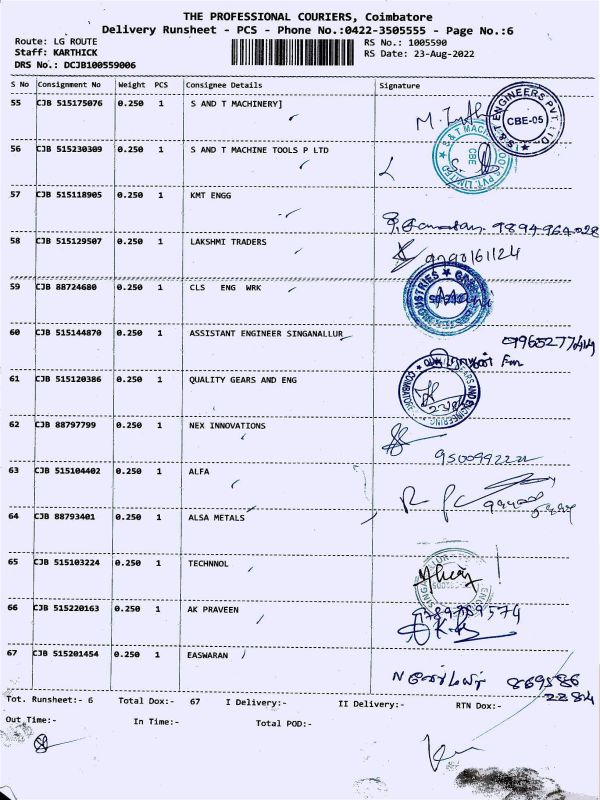 THE PROFESSIONAL COURIERS, Coimbatore
Delivery Runsheet - PCS - Phone No.:0422-3505555 - Page No.:6
Route: LG ROUTE RS No.: 1005590
Staff: KARTHICK RS Date: 23-Aug-2022
DRS No.: DCJB100559006
S No Consignment No Weight PCS Consignee Details Signature
55 CJB 515175076 0.250 1 S AND T MACHINERY]
S & T ENGINEERS PVT. LTD CBE-05
56 CJB 515230309 0.250 1 S AND T MACHINE TOOLS P LTD
57 CJB 515118905 0.250 1 KMT ENGG
9894964028
58 CJB 515129507 0.250 1 LAKSHMI TRADERS
9790161124
59 CJB 88724680 0.250 1 CLS ENG WRK
60 CJB 515144870 0.250 1 ASSISTANT ENGINEER SINGANALLUR
61 CJB 515120386 0.250 1 QUALITY GEARS AND ENG
62 CJB 88797799 0.250 1 NEX INNOVATIONS
63 CJB 515104402 0.250 1 ALFA
64 CJB 88793401 0.250 1 ALSA METALS
65 CJB 515103224 0.250 1 TECHNNOL
66 CJB 515220163 0.250 1 AK PRAVEEN
67 CJB 515201454 0.250 1 EASWARAN
Tot. Runsheet:- 6 Total Dox:- 67 I Delivery:- II Delivery:- RTN Dox:-
Out Time:- In Time:- Total POD:-